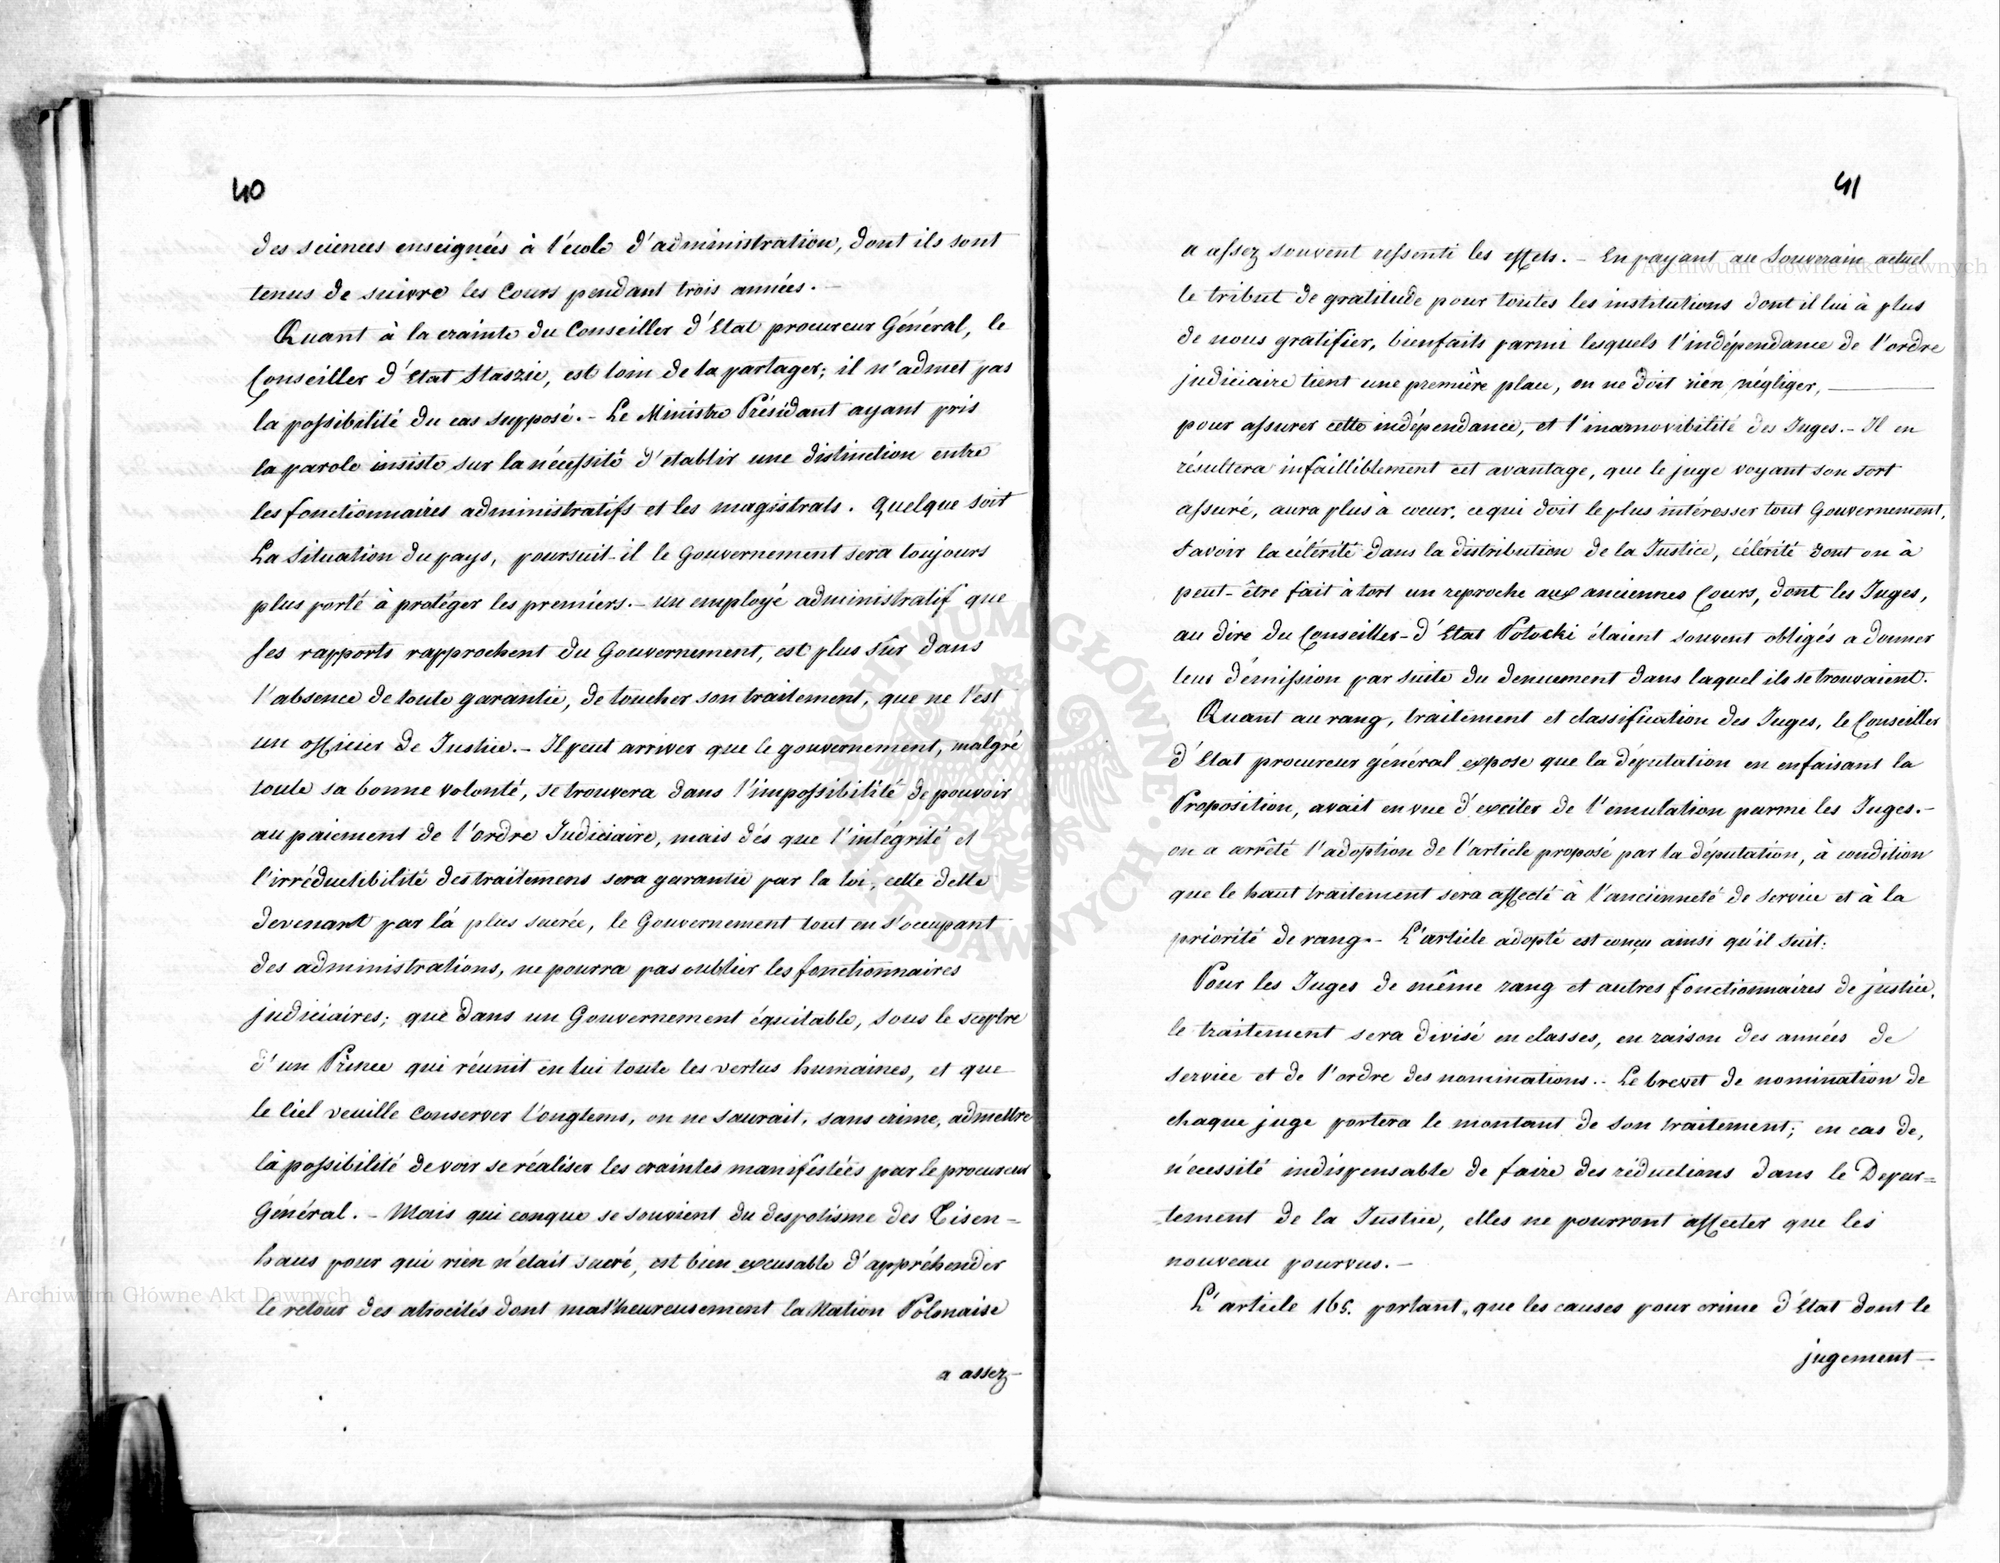 40
des sciences enseignées à l'école d'administration, dont ils sont
tenus de suivre les Cours pendant trois années. —
Quant à la crainte du Conseiller d'Etat procureur Général, le
Conseiller d'Etat Staszic, est loin de la partager; il n'admet pas
la possibilité du cas supposé. - Le Ministre Présidant ayant pris
la parole insiste sur la nécessité d'etablir une distinction entre
les fonctionnaires administratifs et les magistrats. Quelque soit
La Situation du pays, poursuit-il le Gouvernement sera toujours
plus porté à protéger les premiers. - un employé administratif que
ses rapports rapprochent du Gouvernement, est plus sur dans
l'absence de toute garantie, de toucher son traitement, que ne l'est
un officier de Justice. - Il peut arriver que le gouvernement, malgré
toute sa bonne volonté, se trouvera dans l'impossibilité de pouvoir
au paiement de l'ordre Judiciaire, mais dés que l'intégrité et
l'irréductibilité des traitemens sera garantie par la loi, cette dette
devenant par là plus sacrée, le Gouvernement tout en s'occupant
des administrations, ne pourra pas oublier les fonctionnaires
judiciaires; que dans un Gouvernement équitable, sous le sceptre
d'un Prince qui réunit en lui toute les vertus humaines, et que
le Ciel veuille conserver longtems, on ne saurait, sans crime, admettre
là possibilité de voir se réaliser les craintes manifestées par le procureur
Général. - Mais qui conque se souvient du despotisme des Eisen-
haus pour qui rien n'était sacré, est bien excusable d'appréhender
le retour des atrocités dont malheureusement la Nation Polonaise
a assez -
41
a assez souvent ressenti les effets. - En payant au Souverain actuel
le tribut de gratitude pour toutes les institutions dont il lui à plus
de nous gratifier, bienfaits parmi lesquels l'indépendance de l'ordre
judiciaire tient une première place, on ne doit rien négliger, —
pour assurer cette indépendance, et l'inamovibilité des Juges. - Il en
résultera infailliblement cet avantage, que le juge voyant son sort
assuré, aura plus à coeur, ce qui doit le plus intéresser tout Gouvernement,
savoir la célérité dans la distribution de la Justice, célérité dont on à
peut-être fait à tort un reproche aux anciennes Cours, dont les Juges,
au dire du Conseiller-d'Etat Potocki étaient souvent obligés a donner
leur démission par suite du denuement dans laquel ils se trouvaient.
Quant au rang, traitement et classification des Juges, le Conseiller
d'Etat procureur général expose que la députation en en faisant la
Proposition, avait en vue d'exciter de l'emulation parmi les Juges. -
on a arrêté l'adoption de l'article proposé par la députation, à condition
que le haut traitement sera affecté à l'ancienneté de service et à la
priorité de rang. - L'article adopté est conçu ainsi qu'il suit:
Pour les Juges de même rang et autres fonctionnaires de justice,
le traitement sera divisé en classes, en raison des années de
service et de l'ordre des nominations. - Le brevet de nomination de
chaque juge portera le montant de son traitement; en cas de,
nécessité indispensable de faire des réductions dans le Depar=
tement de la Justice, elles ne pourront affecter que les
nouveau pourvus. -
L'article 165. portant „que les causes pour crime d'Etat dont le
jugement -
Archiwum Główne Akt Dawnych
Archiwum Główne Akt Dawnych
ARCHIWUM GŁÓWNE AKT DAWNYCH